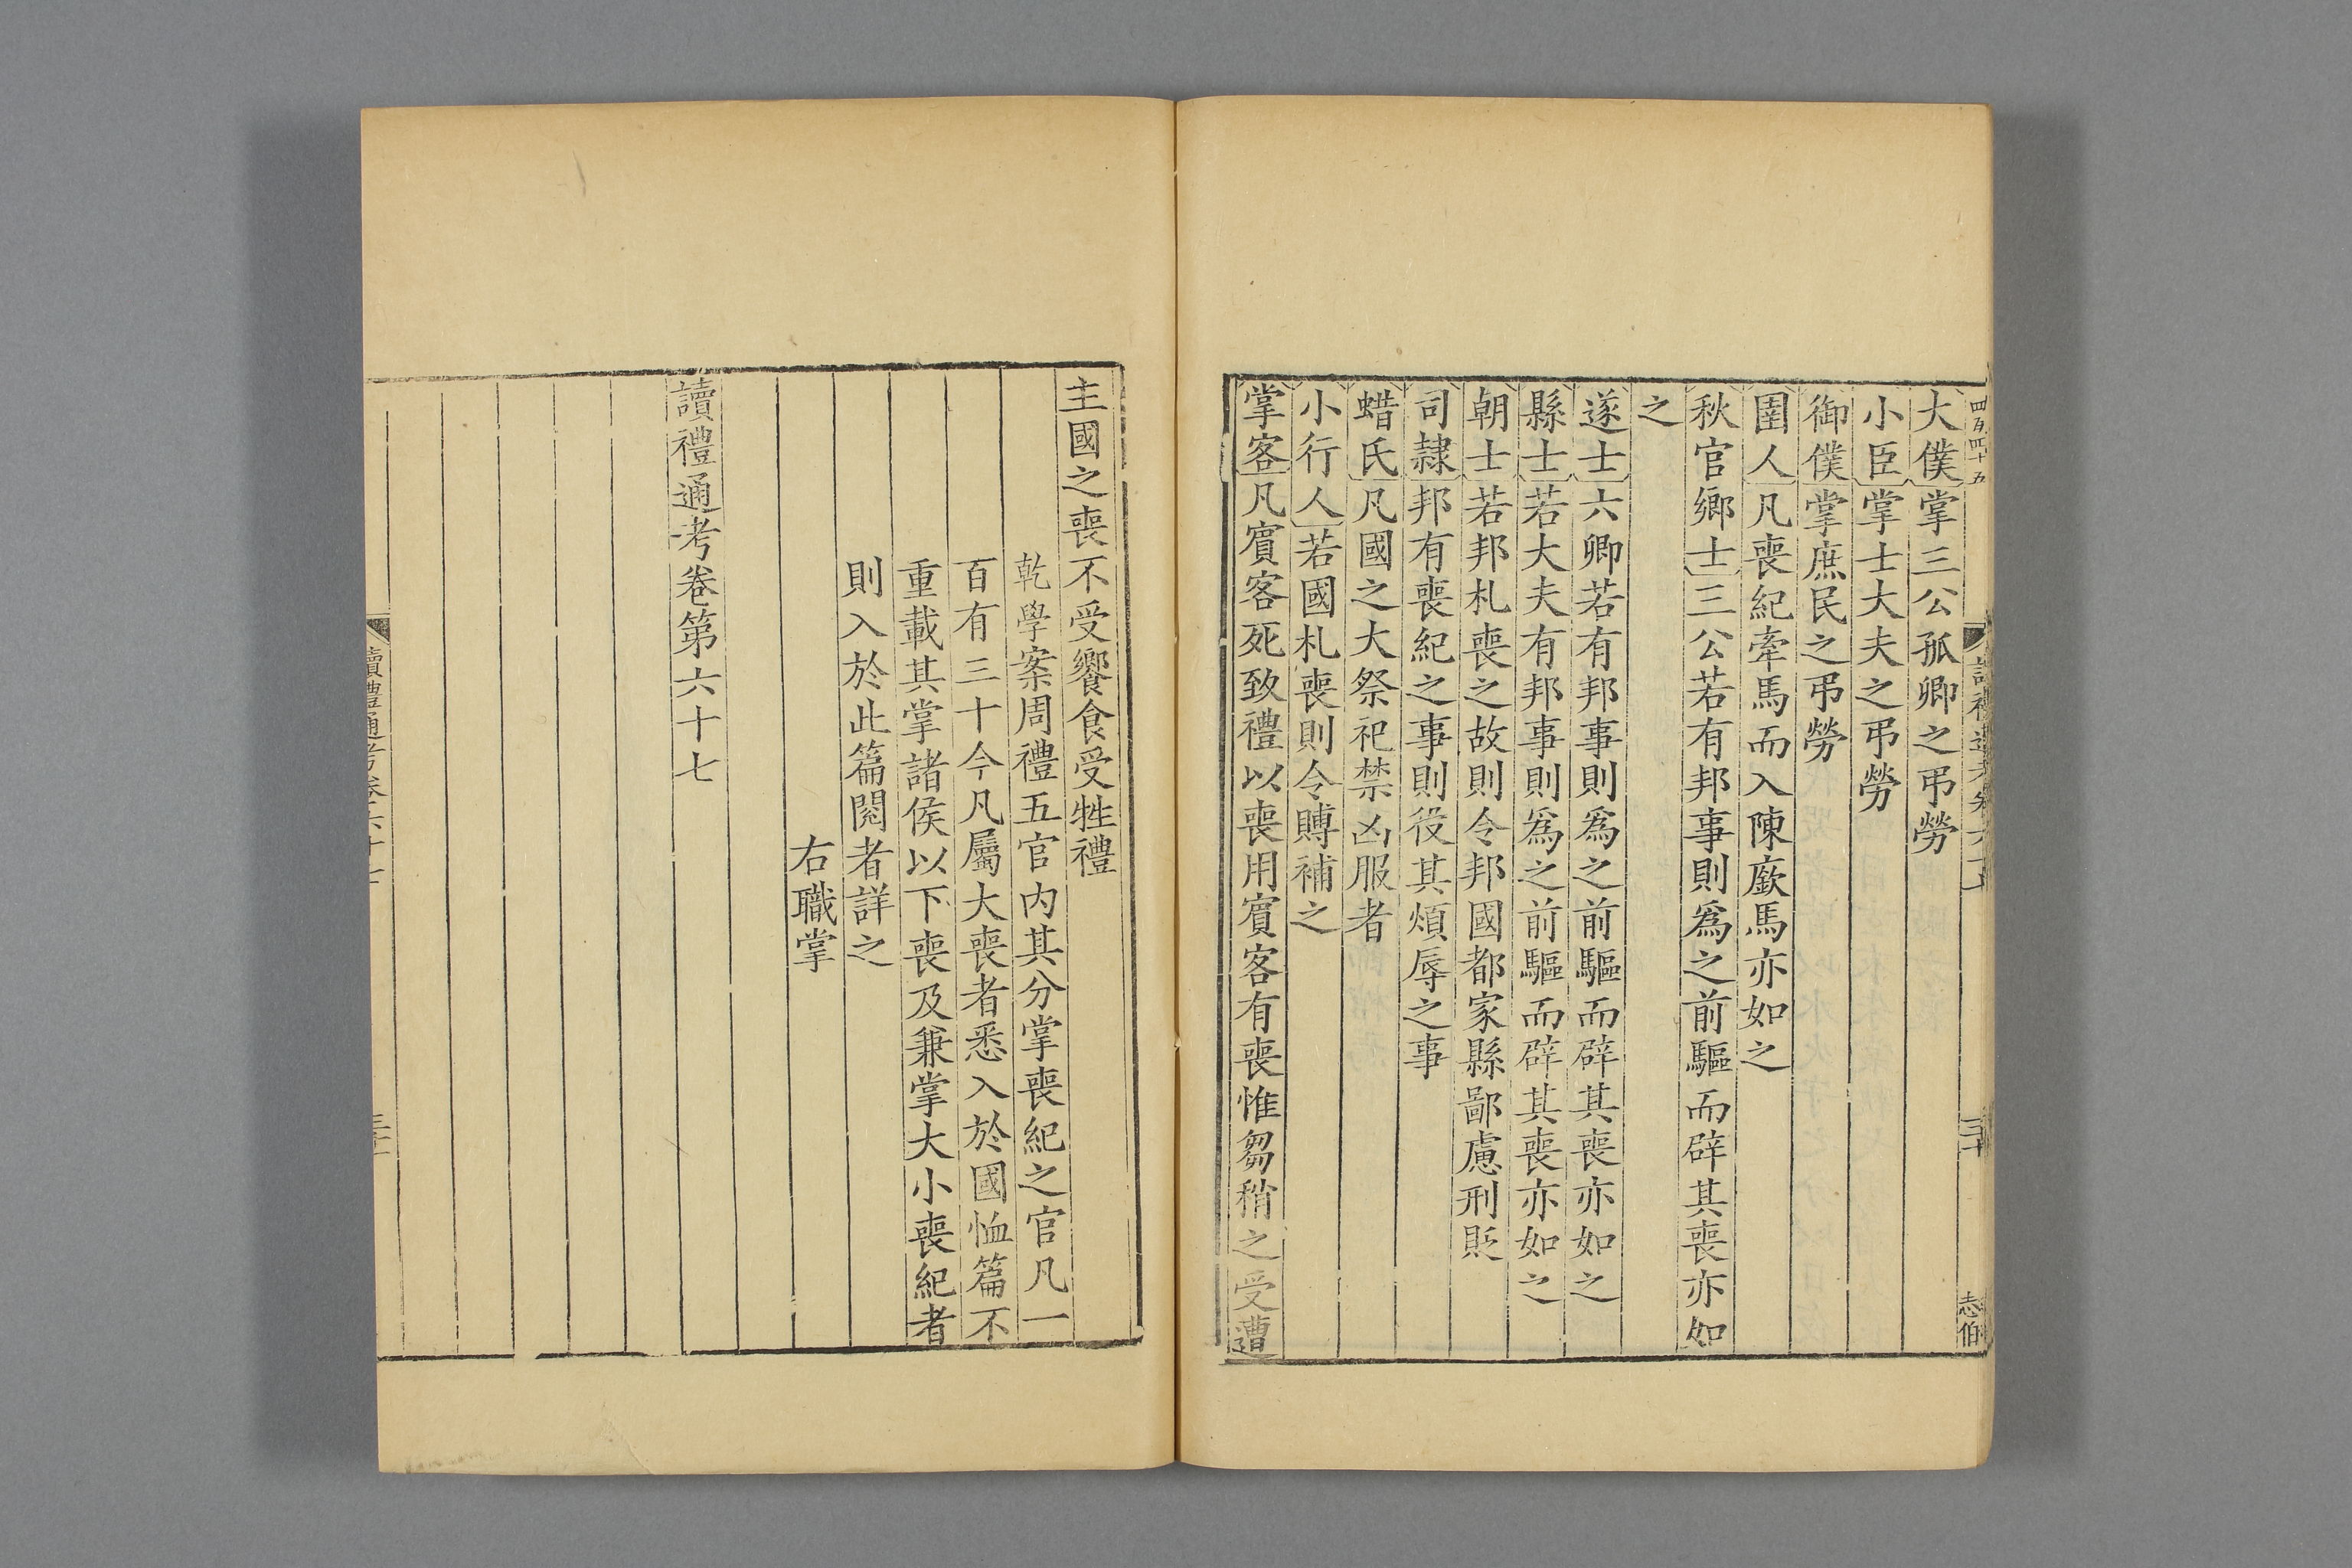 四百四十五
大僕掌三公孤卿之弔勞
小臣掌士大夫之弔勞
御僕掌庶民之弔勞
圉人凡喪紀牽馬而入陳廞馬亦如之
秋官鄉士三公若有邦事則爲之前驅而辟其喪亦如
之
遂士六卿若有邦事則爲之前驅而辟其喪亦如之
縣士若大夫有邦事則爲之前驅而辟其喪亦如之
朝士若邦札喪之故則令邦國都家縣鄙慮刑貶
司隷邦有喪紀之事則役其煩辱之事
蜡氏凡國之大祭祀禁凶服者
小行人若國札喪則令賻補之
掌客凡賔客死致禮以喪用賔客有喪惟芻稍之受遭
主國之喪不受饗食受牲禮
乾學案周禮五官內其分掌喪紀之官凡一
百有三十今凡屬大喪者悉入於國恤篇不
重載其掌諸侯以下喪及兼掌大小喪紀者
則入於此篇閱者詳之
右職掌
讀禮通考卷第六十七
讀禮通考卷六十七
三十
志伯